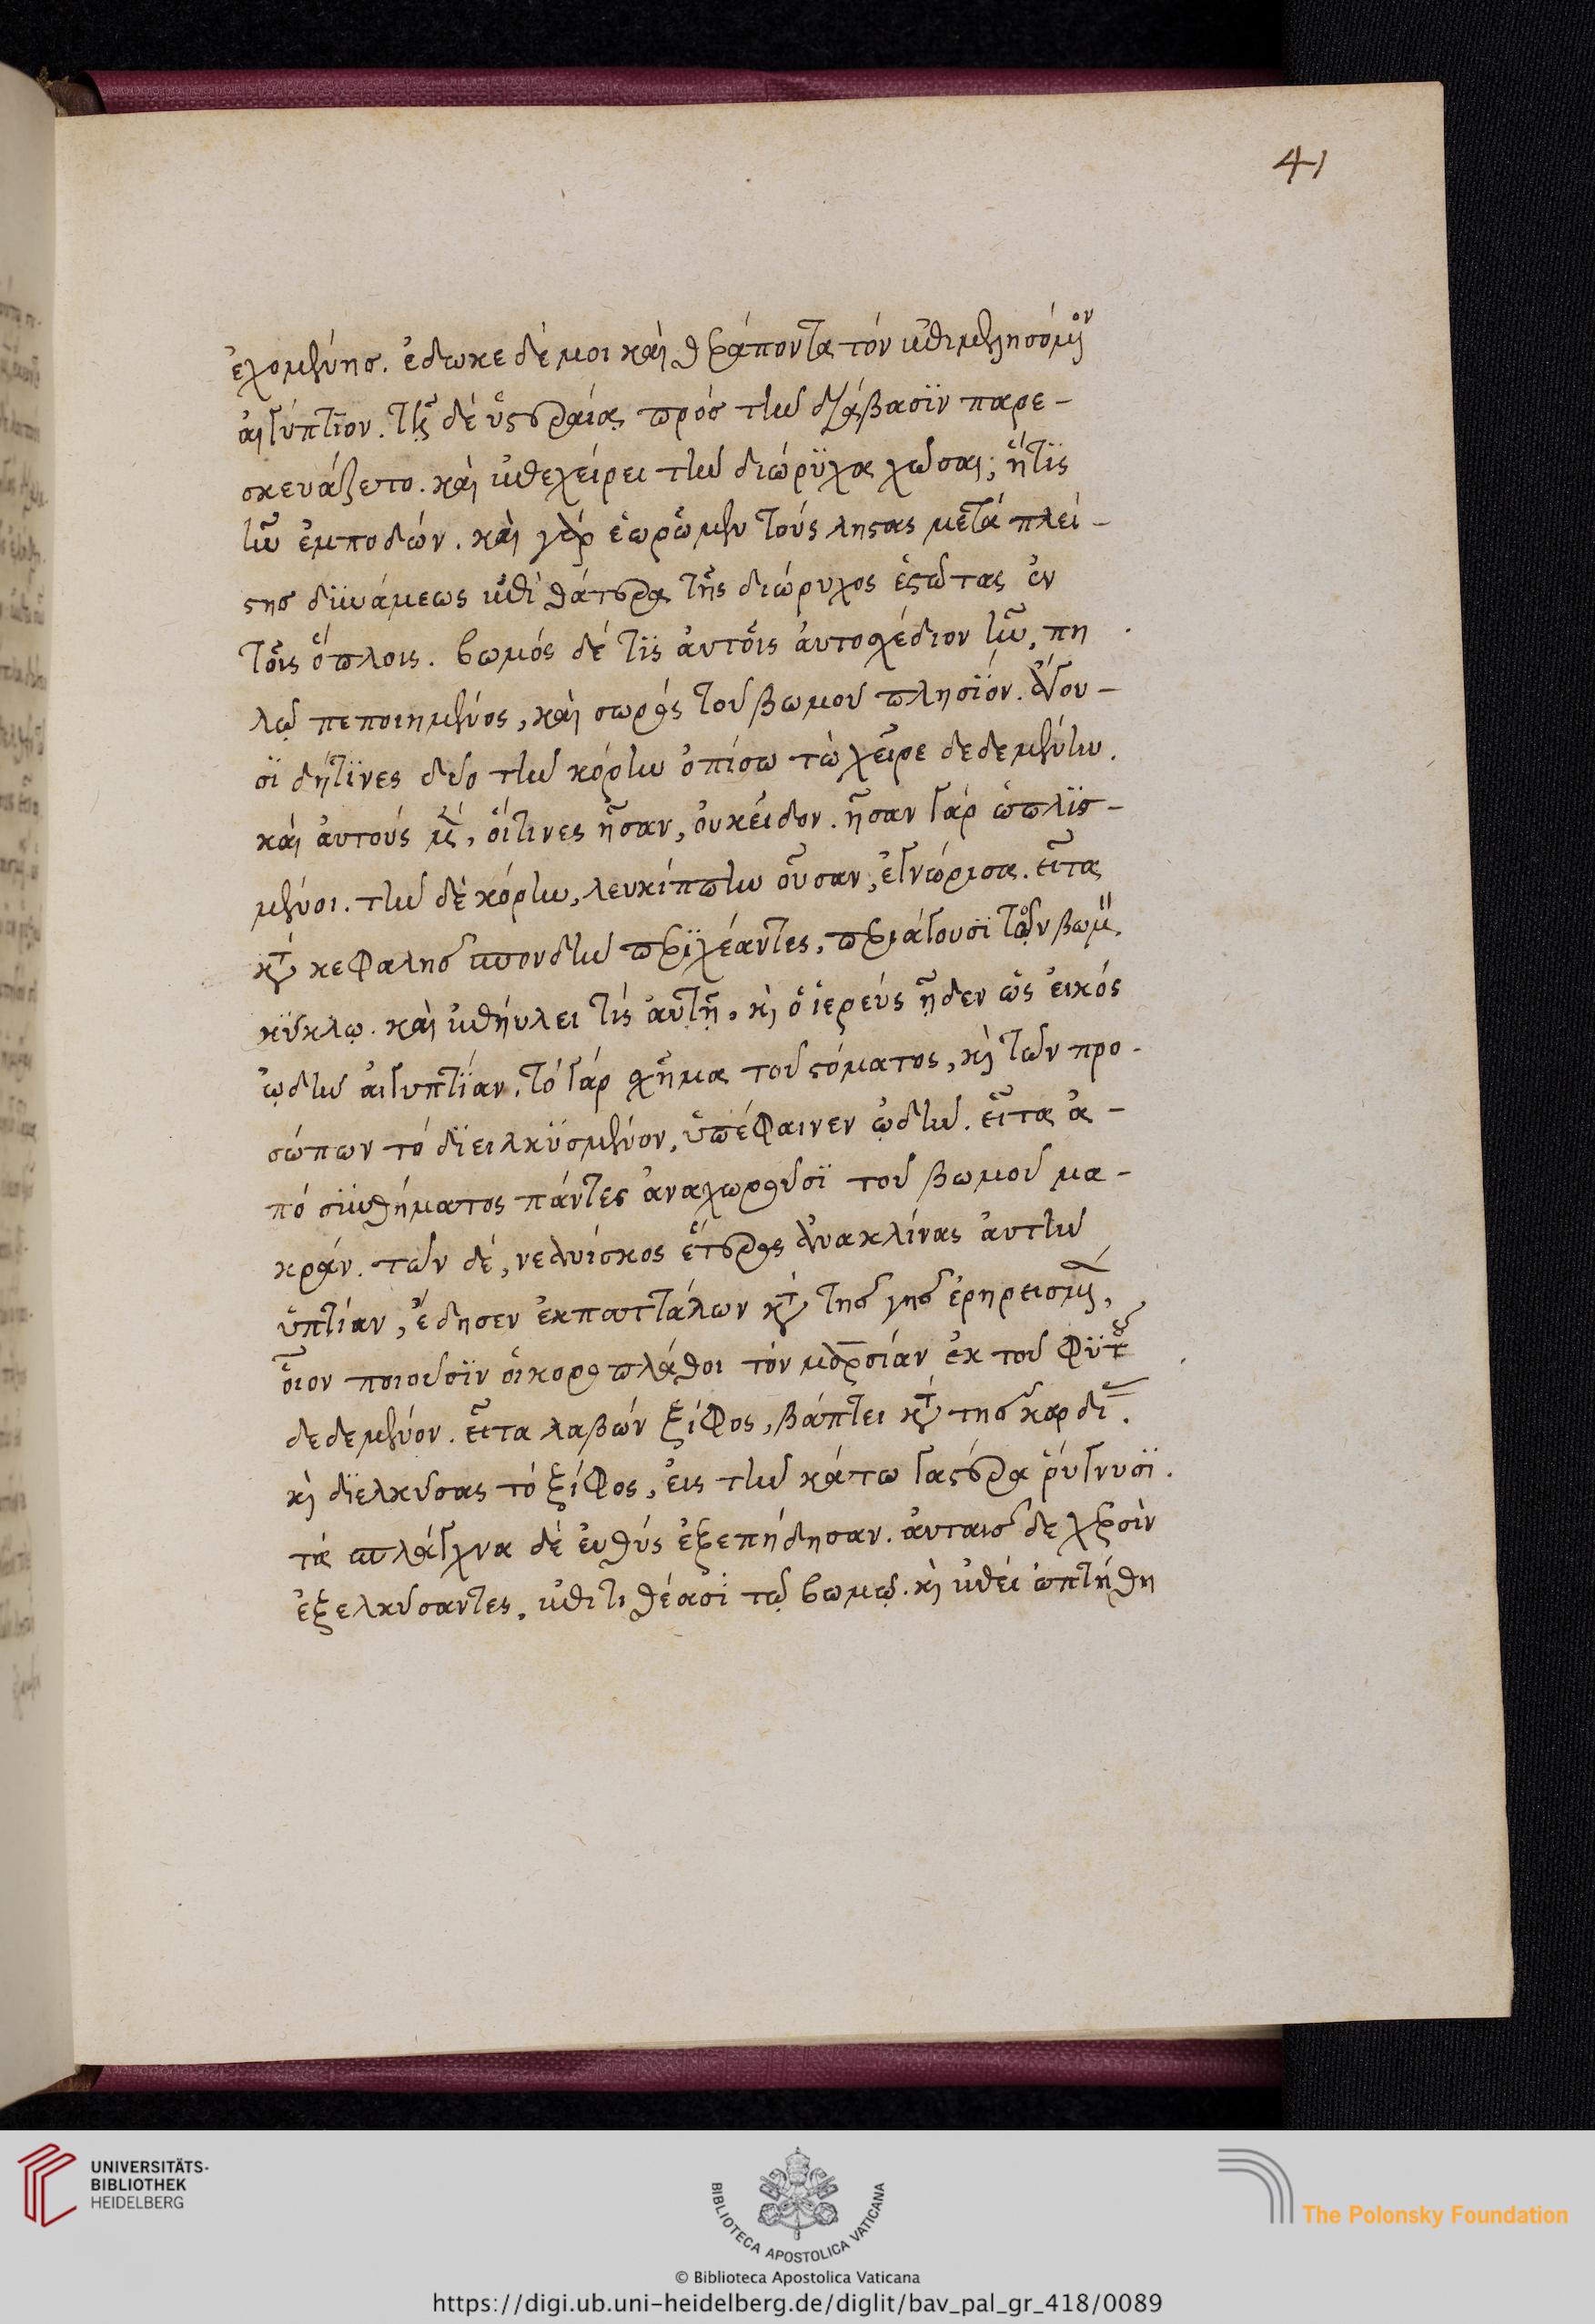 41
ἐχομένης. ἔδωκε δέ μοι καὶ θεράποντα τὸν ἐπιμελησόμενον
αἰγύπτιον. τῆς δὲ ὑστεραίας πρὸς τὴν διάβασϊν παρε-
σκευάζετο. καὶ ἐπεχείρει τὴν διώρϋχα χῶσαι; ἥτϊς
ἦν ἐμποδών. καὶ γὰρ ἑωρῶμεν τοὺς ληστὰς μετὰ πλεί-
στης δϋνάμεως ἐπὶ θάτερα τῆς διώρυχος ἑστῶτας ἐν
τοῖς ὅπλοις. βωμὸς δέ τϊς ἀυτοῖς ἀυτοσχέδιον ἦν, πη
λῷ πεποιημένος, καὶ σωρὸς τοῦ βωμοῦ πλησϊόν. ἄγου-
σϊ δή τϊνες δύο τὴν κόρην ὀπίσω τὼ χεῖρε δεδεμένην.
καὶ ἀυτοὺς μὲν, οἵτινες ἦσαν, ὀυκ εἶδον. ἦσαν γὰρ ὡπλϊσ-
μένοι. τὴν δὲ κόρην, λευκίππην οὖσαν, ἐγνώρισα. εἶτα
κατὰ κεφαλῆς σπονδὴν περϊχέαντες, περιάγουσϊ τὸν βωμ.
κϋκλῳ. καὶ ἐπηύλει τὶς ἀυτῇ. κὶ ὁ ἱερεὺς ᾖδεν ὡς εἰκὸς
ᾠδὴν ἀιγυπτϊαν. τὸ γὰρ σχῆμα τοῦ στόματος, κὶ τῶν προ-
σώπων τὸ δϊειλκϋσμένον, ὑπέφαινεν ᾠδήν. εἶτα ἀ-
πὸ σϋνθήματος πάντες ἀναχωροῦσϊ τοῦ βωμοῦ μα-
κράν. τῶν δὲ, νεανίσκος ἕτερος ἀνακλίνας ἀυτὴν
ὑπτίαν, ἔδησεν ἐκ παττάλων κατὰ τῆς γῆς ἐρηρεισμένων,
οἷον ποιοῦσϊν οἱ κοροπλάθοι τὸν μαρσίαν ἐκ τοῦ φϋτοῦ
δεδεμένον. εἶτα λαβὼν ξίφος, βάπτει κατὰ τῆς καρδίας.
κὶ δϊελκύσας τὸ ξίφος, ἐις τὴν κάτω γαστέρα ῥύγνυσϊ.
τὰ σπλάγχνα δὲ ἐυθὺς ἐξεπήδησαν. ἁυταῖς δὲ χερσὶν
ἐξελκύσαντες, ἐπιτιθέασϊ τῷ βωμῷ. κὶ ἐπεὶ ὠπτήθη
UNIVERSITÄTS-
BIBLIOTHEK
HEIDELBERG
BIBLIOTECA APOSTOLICA VATICANA
The Polonsky Foundation
© Biblioteca Apostolica Vaticana
https://digi.ub.uni-heidelberg.de/diglit/bav_pal_gr_418/0089